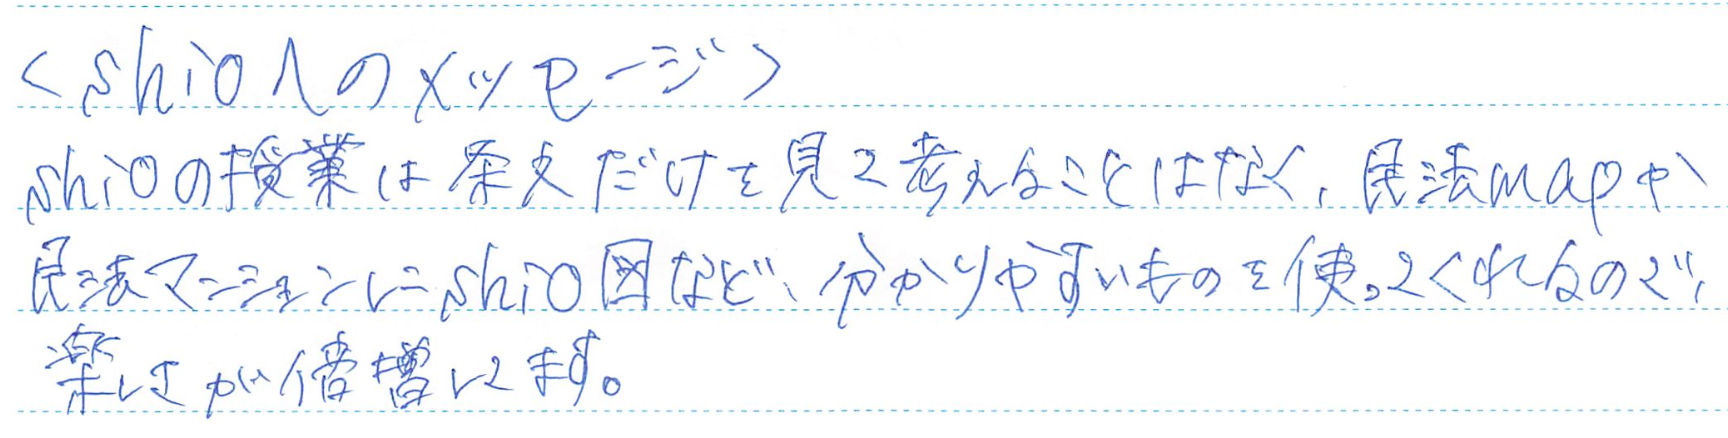 <shioへのメッセージ>
shioの授業は条文だけを見て考えることはなく、民法mapや
民法マンションにshio図など、分かりやすいものを使ってくれるので、
楽しさが倍増してます。